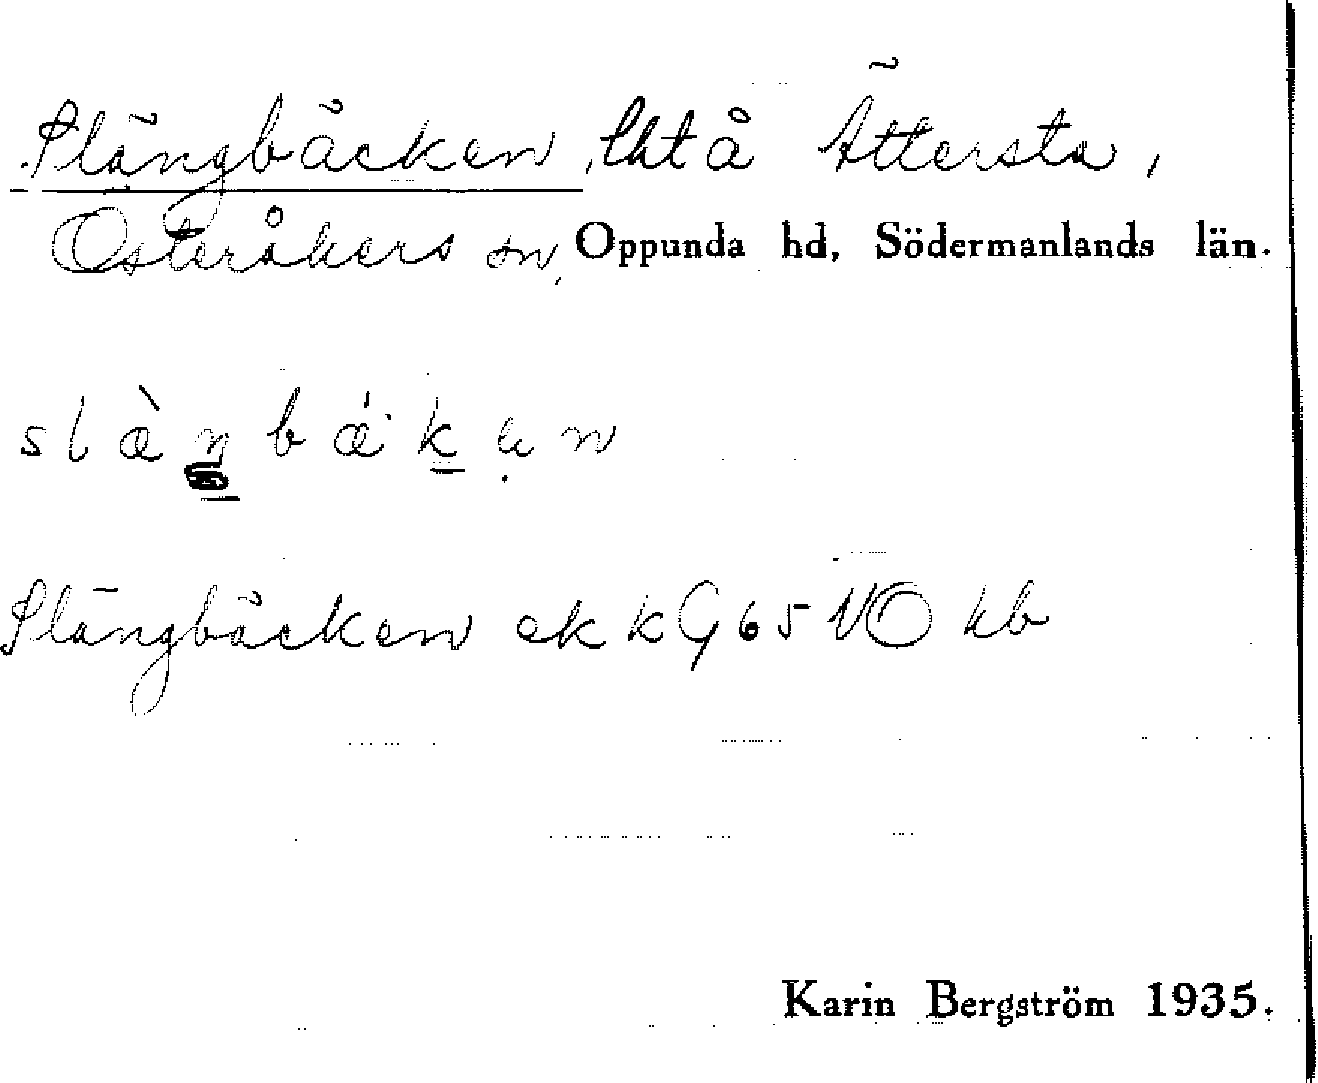 Slängbäcken, lht å Ättersta,
Österåkers sn, Oppunda hd, Södermanlands län.
slæ̀ŋbǽkən
Slängbäcken ekkG65VÖ kb
Karin Bergström 1935.